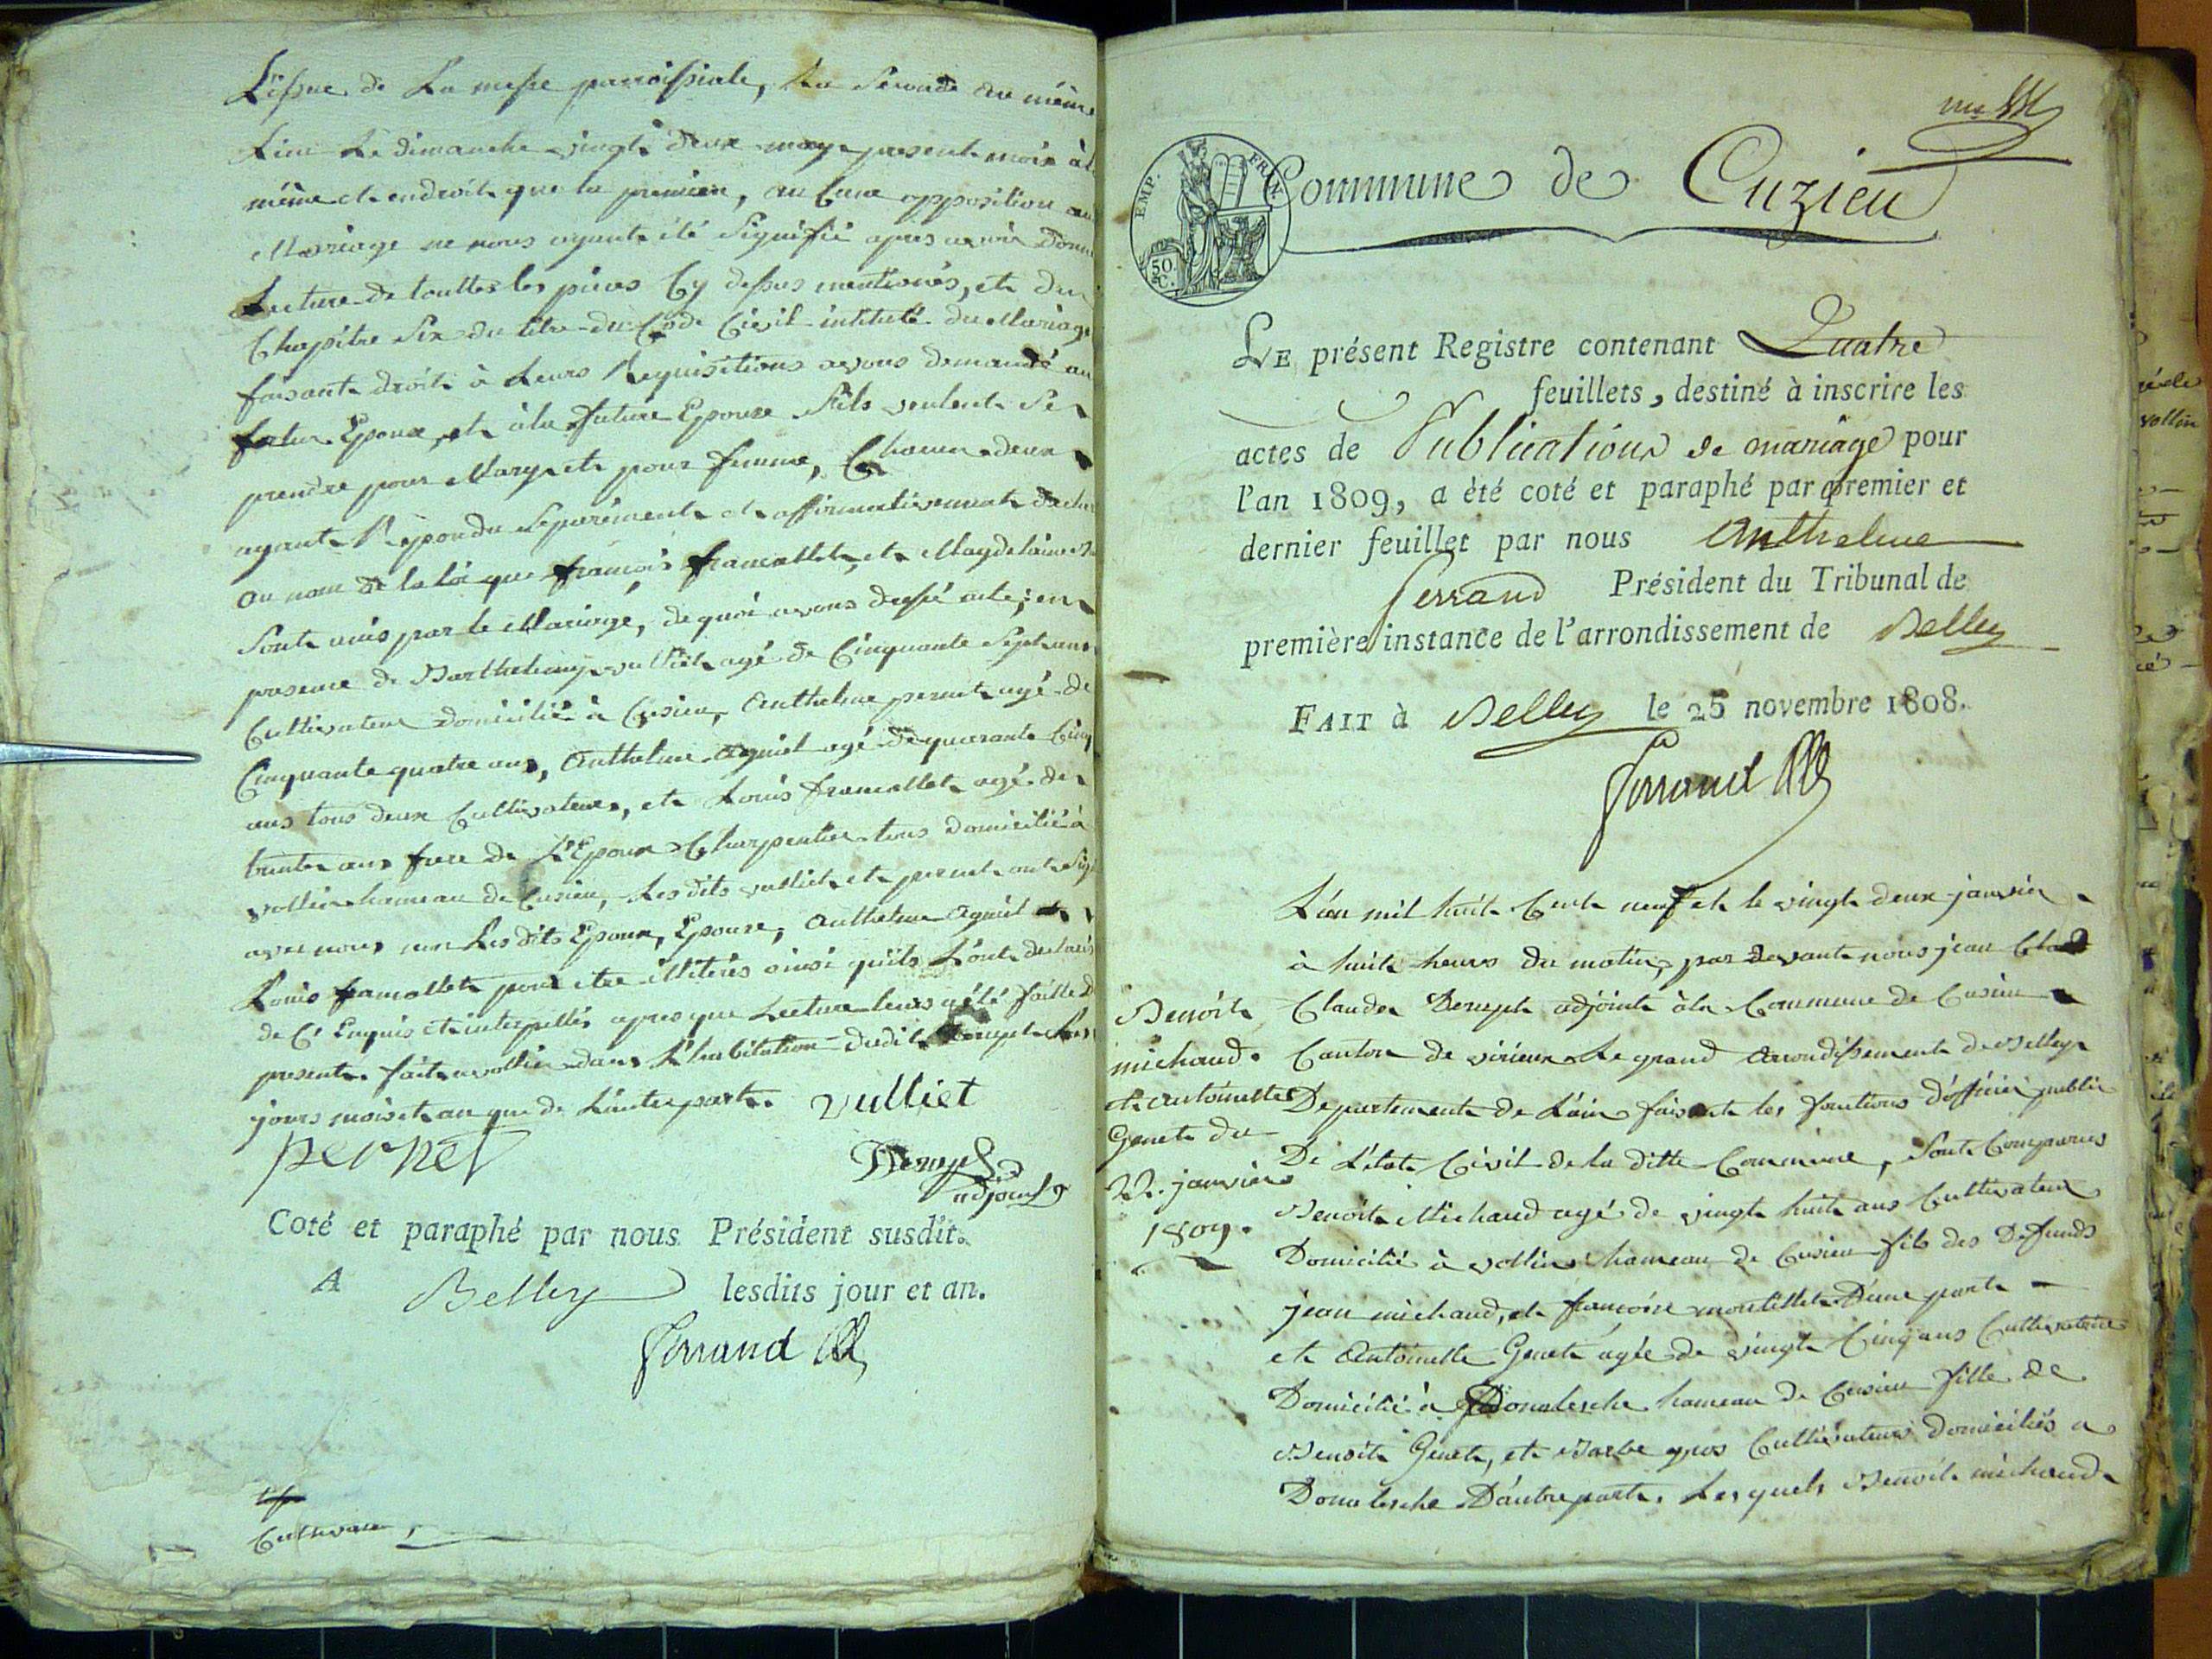 L'issue de La messe parroissiale, La Seconde au même
Lieu Le dimanche vingt deux may present mois à
même et endroit que la premiere, au Cune oppposition au
Mariage ne nous ayant été Signifié apres avoir donné
Lecture de touttes les pieces Cy dessus mentionés, et du
Chapitre Six du titre du Code Civil intitulé du Mariage
faisant droit à Leurs Requisitions avons demandé au
futur Epoux, et à la future Epouse Sils veulent Se
prendre pour Mary et pour femme, Chacun deux
ayant Répondu Séparément et affirmativement
au nom de la loi que françois francallet, et Magdelaine
Sont unis par le Mariage, de quoi avons dressé acte; en
presence de Barthelemy vulliet agé de Cinquante Sept ans
Cultivateur domicilié à Cusieu, Anthelme pernet agé de
Cinquante quatre ans, Anthelme Aguiet agé de quarante Cinq
ans tous deux Cultivateurs, et Louis francallet agé de
trente ans frere de L'Epoux Charpentier tous domicilié à
vollien hameau de Cusieu, Les dits vulliet et pernet ont
avec nous non Les dits Epoux, Epouse, Anthelme Aguiet et
Louis francallet pour etre illiterés ainsi qu'ils L'ont
de Ce Enquis et interpellés apres que Lecture leurs a été faitte
presente. fait a vollien dans L'habitation dudit Dernept Les
jours mois et an que de L'autre part. vulliet
pernet
Dernept
adjoint
Coté et paraphé par nous Président susdit.
A Belley lesdits jour et an.
Ferrand
Cultivateur
EMP. FRAN.
50.
C.
Commune de Cuzieu
LE présent Registre contenant Quatre
feuillets, destiné à inscrire les
actes de Publications de mariage pour
l'an 1809, a été coté et paraphé par premier et
dernier feuillet par nous Anthelme
Ferrand Président du Tribunal de
première instance de l'arrondissement de Belley
FAIT à Belley le 25 novembre 1808.
Ferrand
L'an mil huit Cent neuf et le vingt deux janvier
à huit heures du matin, par devant nous jean
Claude Dernept adjoint à la Commune de Cusieu
Canton de virieux Le grand Arrondissement de Belley
Departement de L'ain faisant les fonctions d'officier public
De L'état Civil de la ditte Commune, Sont Comparus
Benoit Michaud agé de vingt huit ans Cultivateur
Domicilié à vollien hameau de Cusieu fils des Defunds
jean michaud, et françoise montillet D'une part
et Antoinette Genet agée de vingt Cinq ans Cultivatrice
Domicilié à Donalesche hameau de Cusieu fille de
Benoit Genet, et Barbe gros Cultivateurs domiciliés a
Donalesche D'autre part. Les quels Benoit michaud
Benoit
michaud.
et antoinette
Genet du
22. janvier
1809.